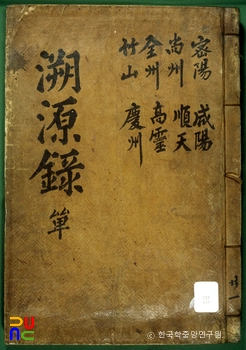 密陽 咸陽
尙州 順天
全州 高靈
竹山 慶州
溯源錄 單
共一
© 한국학중앙연구원